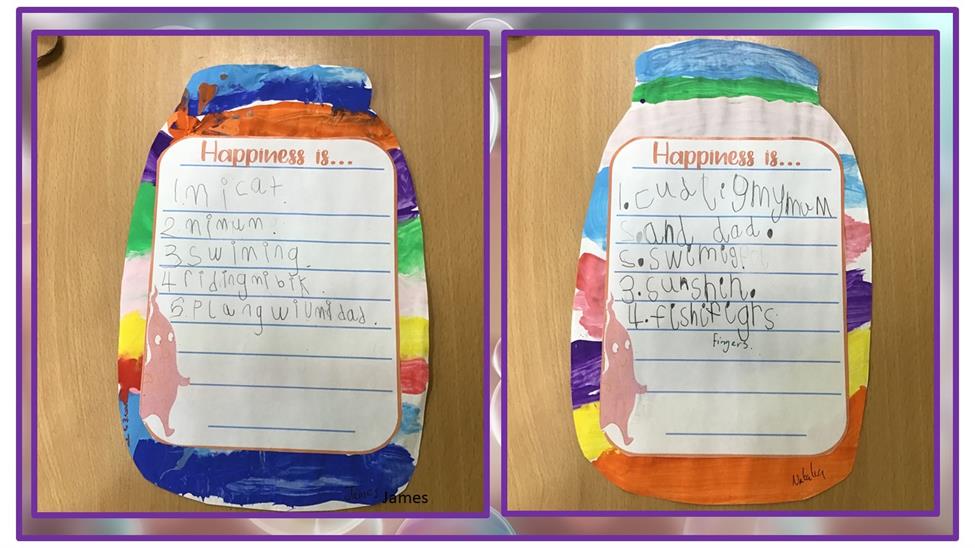 Happiness is...
1. mi cat.
2 mimum.
3 swiming.
4 ridingmibik.
5. Plangwiumidad.
James
James
Happiness is...
1. cudligmymum
and dad.
swimig.
3. sunshin.
4. fishfigrs
fingers.